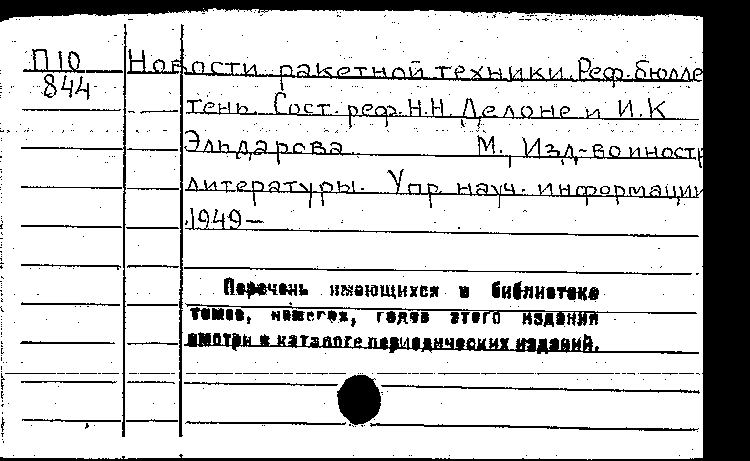 П10 Новости ракетной техники. Реф. бюлле
844
тень. Сост. реф. Н.Н. Делоне и И.К
Эльдарова. М., Изд-во иностр
литературы. Упр. науч. информации
1949—
Перечень имеющихся в библиотеке
томов, номеров, годов этого издания
смотри в каталоге периодических изданий.